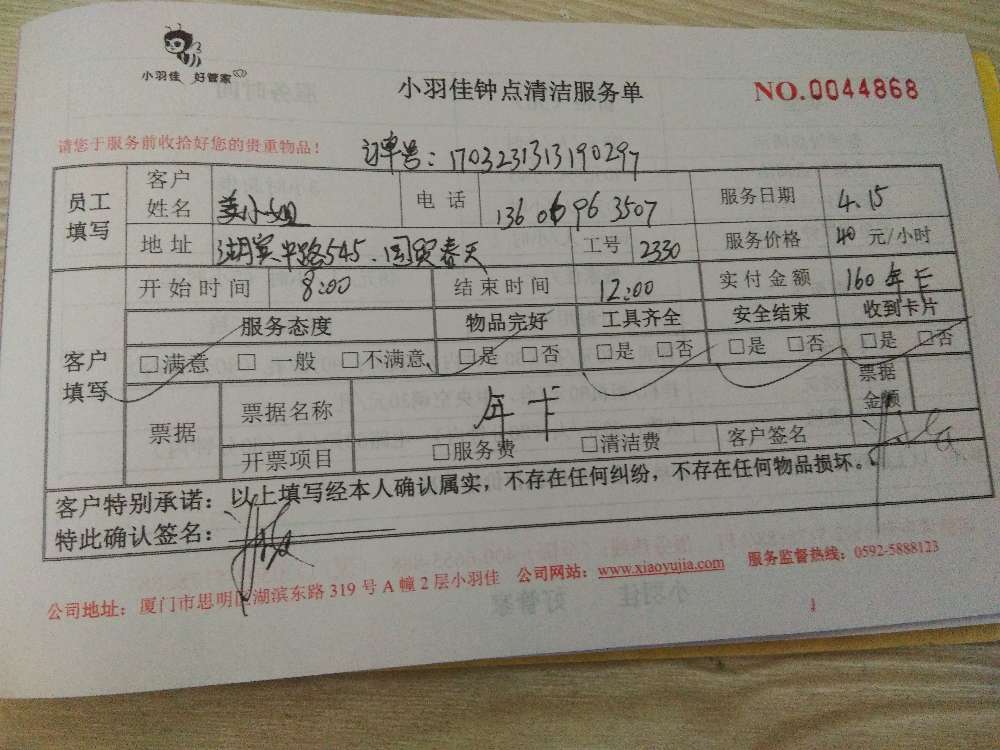 小羽佳 好管家
小羽佳钟点清洁服务单
NO.0044868
请您于服务前收拾好您的贵重物品!
订单号: 1703231313190297
员工填写 客户姓名 姜小姐 电话 13606963507 服务日期 4.15
地址 湖宾中路545.国贸春天 工号 2330 服务价格 40 元/小时
客户填写 开始时间 8:00 结束时间 12:00 实付金额 160年卡
服务态度 物品完好 工具齐全 安全结束 收到卡片
□满意 □一般 □不满意 □是 □否 □是 □否 □是 □否 □是 □否
票据 票据名称 年卡 票据金额
开票项目 □服务费 □清洁费 客户签名
客户特别承诺:以上填写经本人确认属实,不存在任何纠纷,不存在任何物品损坏。
特此确认签名:
公司地址:厦门市思明区湖滨东路319号A幢2层小羽佳 公司网站:www.xiaoyujia.com 服务监督热线:0592-5888123